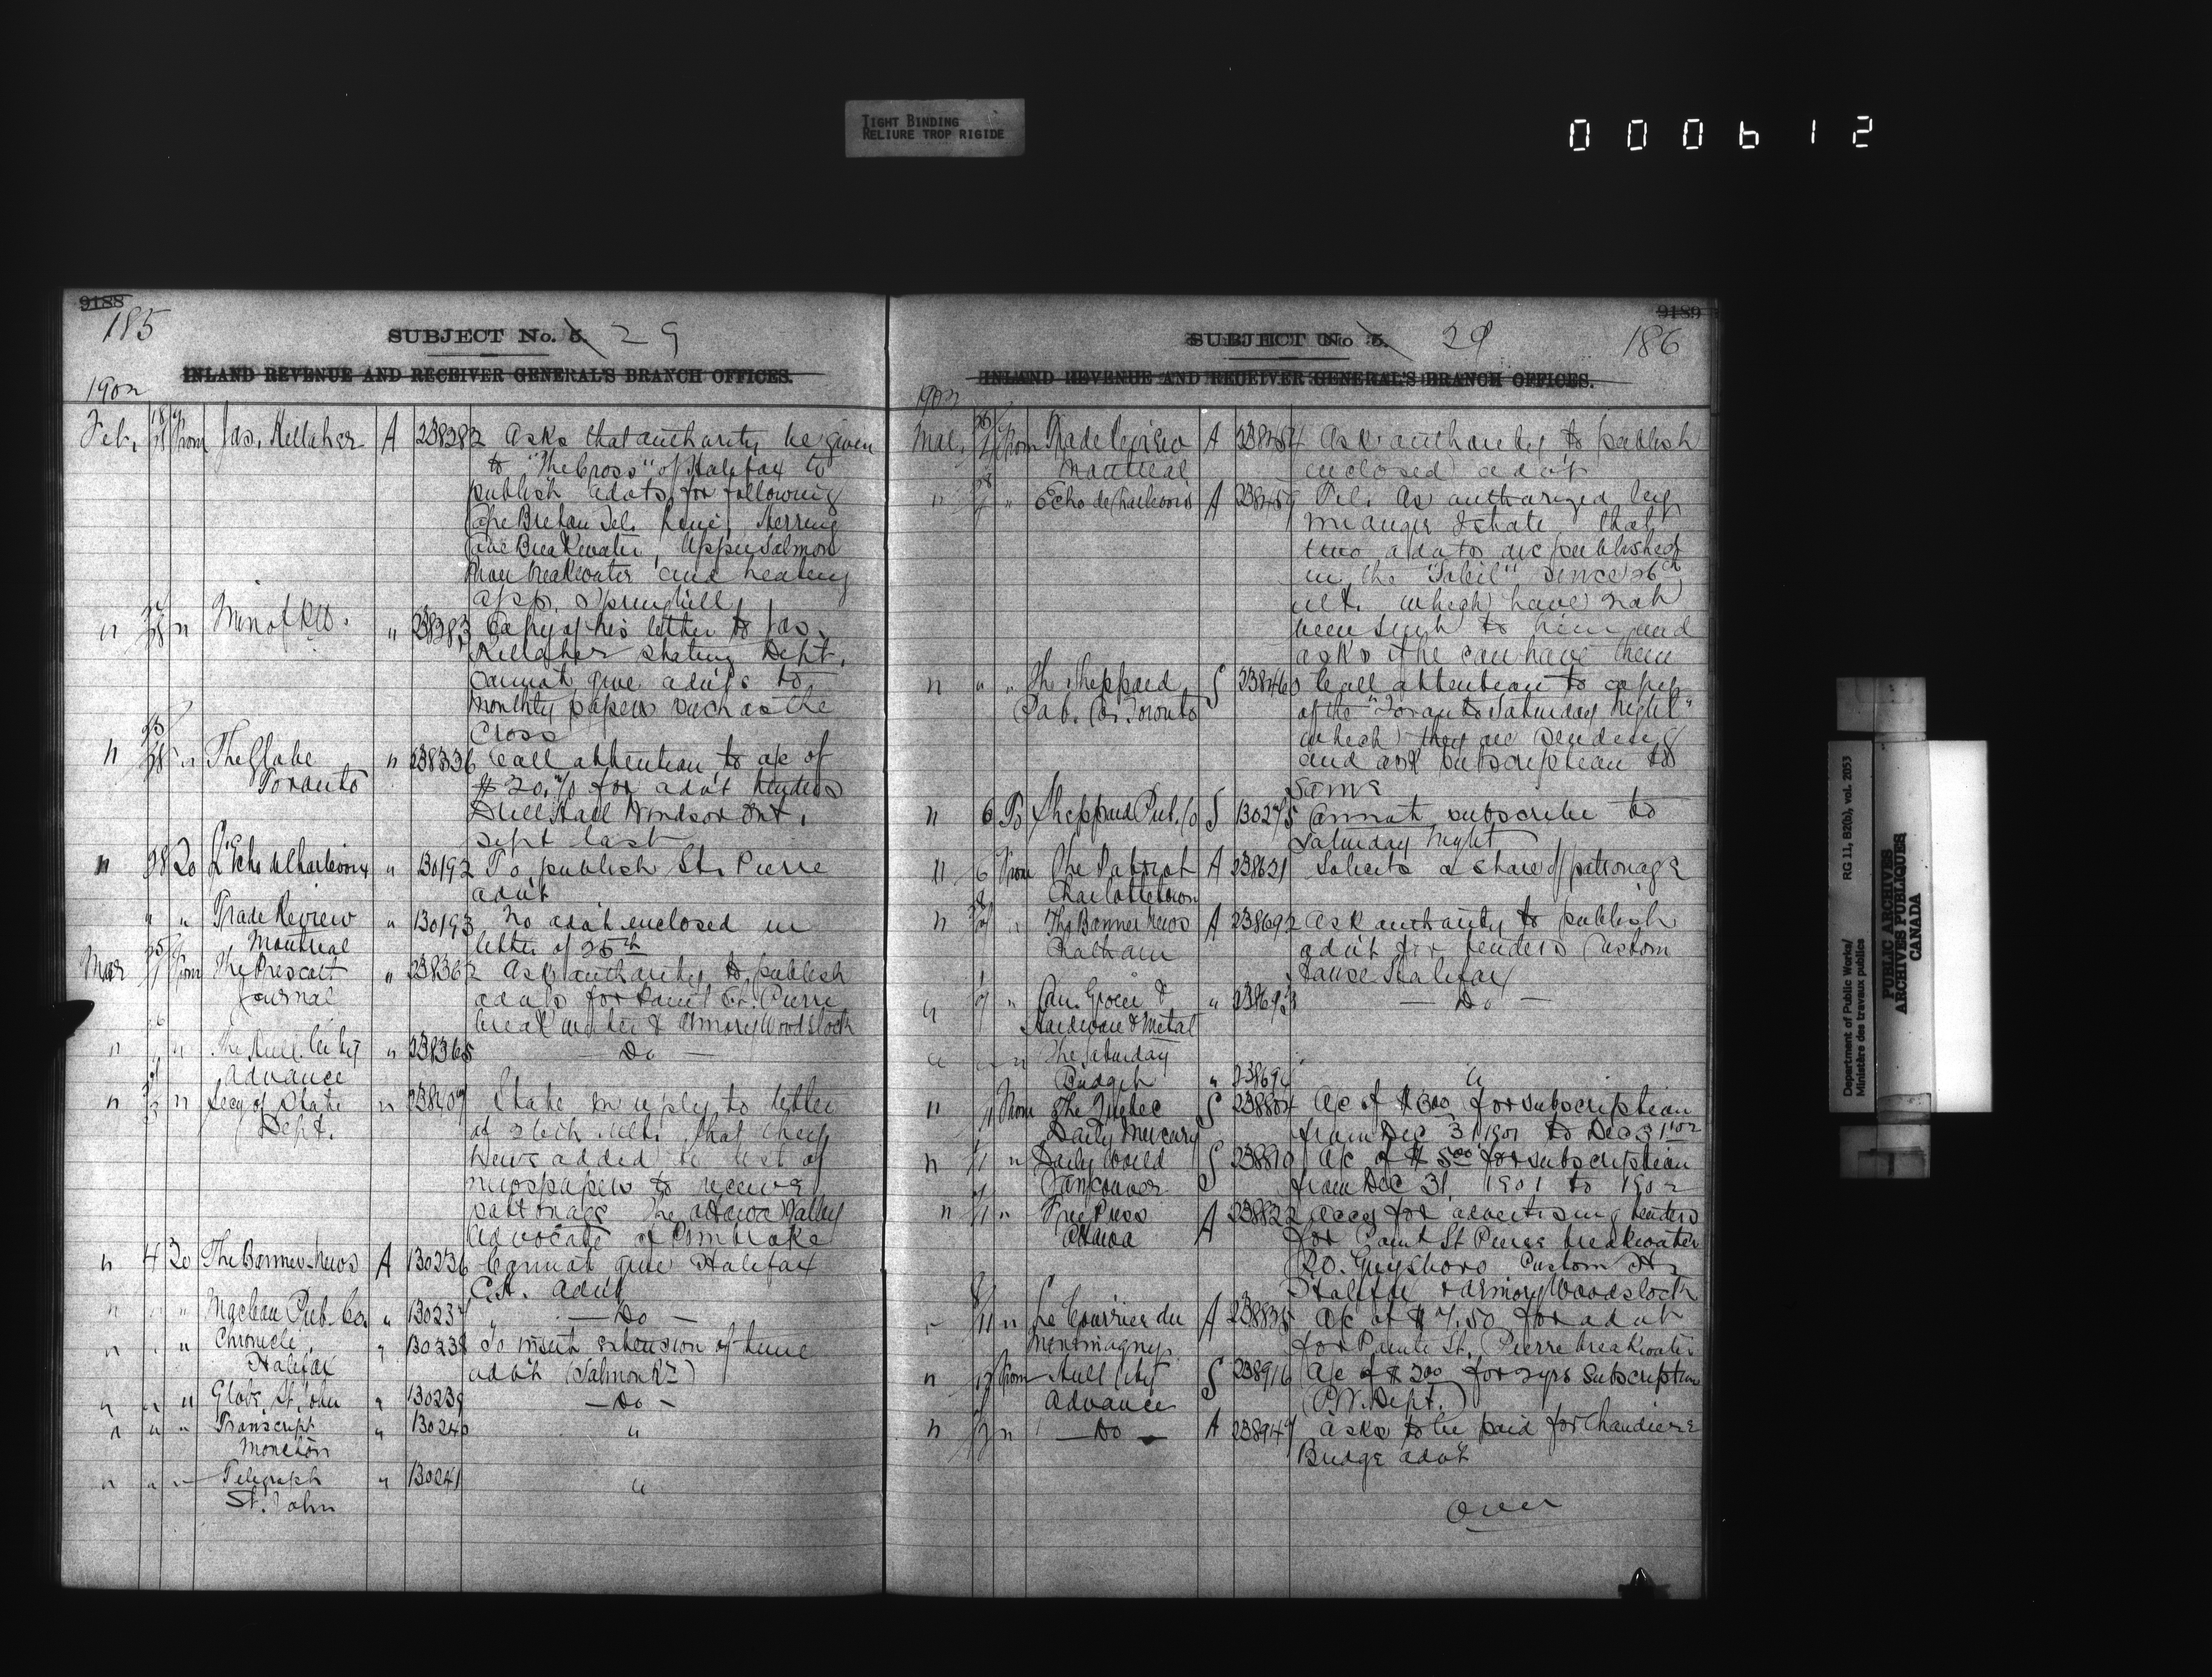 TIGHT BINDING
RELIURE TROP RIGIDE
000612
9188
185
SUBJECT No. 5. 29
INLAND REVENUE AND RECEIVER GENERAL'S BRANCH OFFICES.
1902
Feb. 18 From Jas. Kellaher A 238282 Asks that authority be given
to "The Cross" of Halifax to
publish advts for following
Cape Breton Tel. Line, Herring
Cove Breakwater, Upper Salmon
River breakwater and heating
app. Springhill
" 28 " Min of P.W. " 238283 Copy of his letter to Jas.
Kellaher stating Dept.
cannot give advts to
monthly papers such as the
Cross
" 28 " The Globe " 238336 Call attention to a/c of
Toronto $20.70 for advt tenders
Drill Hall Windsor Ont.
Sept last
" 28 To L'Echo de Charlevoix " 130192 To publish St. Pierre
advt
" " Trade Review " 130193 No advt enclosed in
Montreal letter of 25th
Mar 1 From The Prescott " 238362 Ask authority to publish
Journal advts for Point St. Pierre
breakwater & Armory Woodstock
" " " The Hull City " 238365 — Do —
Advance
" 3 " Secy of State " 238407 State in reply to letter
Dept. of ult. that they
have added to list of
newspapers to receive
patronage The Ottawa Valley
Advocate of Pembroke
" 4 To The Banner-News A 130236 Cannot give Halifax
C.H. advt
" " " Maclean Pub. Co. " 130237 " — Do —
" " " Chronicle " 130238 To insert extension of time
Halifax advt (Salmon Rr)
" " " Globe St. John " 130239 — Do —
" " " Transcript " 130240 "
Moncton
" " " Telegraph " 130241 "
St. John
9189
SUBJECT No 5. 29 186
INLAND REVENUE AND RECEIVER GENERAL'S BRANCH OFFICES.
1902
Mar. From Trade Review A 238454 Ask authority to publish
Montreal enclosed advt
" " Echo de Charlevoix A Tel. As authorized by
Mr Auger & state that
two advts are published
in the "Soleil" since 26th
ult. which have not
been sent to him and
asks if he can have them
" " " The Sheppard S 238460 Call attention to copy
Pub. Co. Toronto of the "Toronto Saturday Night"
which they are sending
and ask subscription to
same
" 6 To Sheppard Pub. Co S 130275 Cannot subscribe to
Saturday Night
" 6 From The Patriot A 238621 Solicits a share of patronage
Charlottetown
" " The Banner News A 238692 Ask authority to publish
Chatham advt for tenders Custom
House Halifax
" 7 " Can. Grocer & " 238693 — Do —
Hardware & Metal
" " " The Saturday
Budget " "
" 11 From The Quebec S 238804 A/c of $3.00 for subscription
Daily Mercury from Dec 31 1901 to Dec 31 1902
" 11 " Daily World S 238810 A/c of $5.00 for subscription
Vancouver from Dec 31, 1901 to 1902
" 11 " Free Press A 238822 Accs for advertising tenders
Ottawa for Point St Pierre breakwater
P.O. Guysboro Custom Hs
Halifax & Armory Woodstock
" 11 " Le Courrier du A A/c of $7.50 for advt
Montmagny for Pointe St. Pierre breakwater
" From Hull City S 238916 A/c of $2.00 for 2 yrs subscription
Advance (P.W. Dept.)
" " — Do — A 238947 Asks to be paid for Chaudiere
Bridge advt
Over
Department of Public Works/ RG 11, B2(b), vol. 2053
Ministère des travaux publics
PUBLIC ARCHIVES
ARCHIVES PUBLIQUES
CANADA